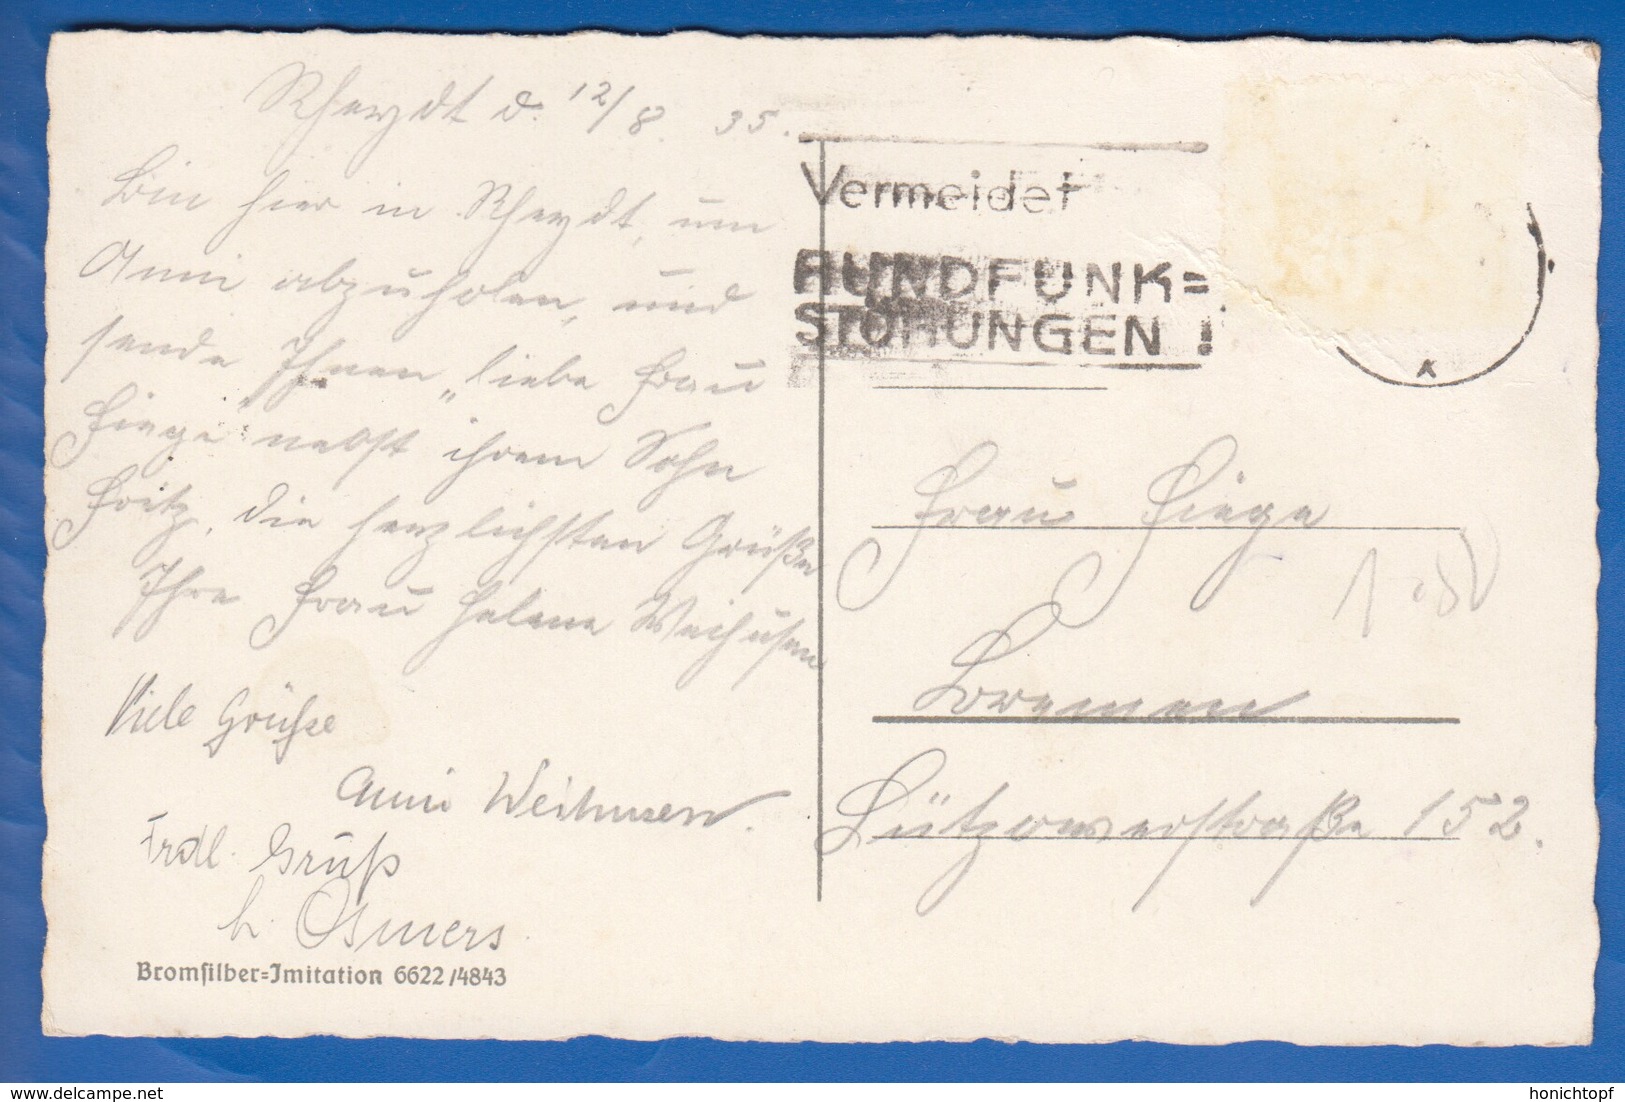 Rheydt d. 12/8. 35.
Bin hier in Rheydt, um
Anni abzuholen, und
sende Ihnen, liebe Frau
Fiege nebst ihrem Sohn
Fritz, die herzlichsten Grüße
Ihre Frau Helene Weihusen
Viele Grüße
Anni Weihusen.
Frdl. Gruß
h. Osmers
Bromsilber=Imitation 6622/4843
Vermeidet
RUNDFUNK=
STÖRUNGEN !
Frau Fiege
Bremen
Lützowerstraße 152.
delcampe.net
honichtopf